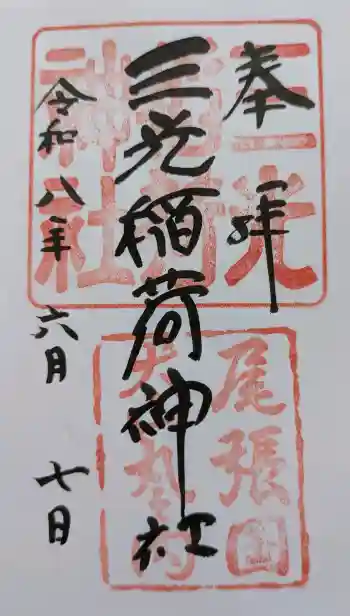 奉拝
三光稲荷神社
令和八年 六月 七日
三光
稲荷
神社
尾張国
犬山城内